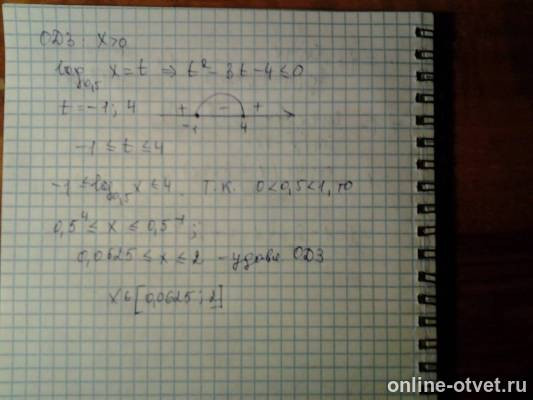 ОДЗ: x>0
log₀,₅ x = t ⇒ t² - 3t - 4 ≤ 0
t = -1; 4
+ - +
-1 4
-1 ≤ t ≤ 4
-1 ≤ log₀,₅ x ≤ 4. Т.к. 0<0,5<1, то
0,5⁴ ≤ x ≤ 0,5⁻¹;
0,0625 ≤ x ≤ 2 - удовл ОДЗ
x ∈ [0,0625; 2]
online-otvet.ru